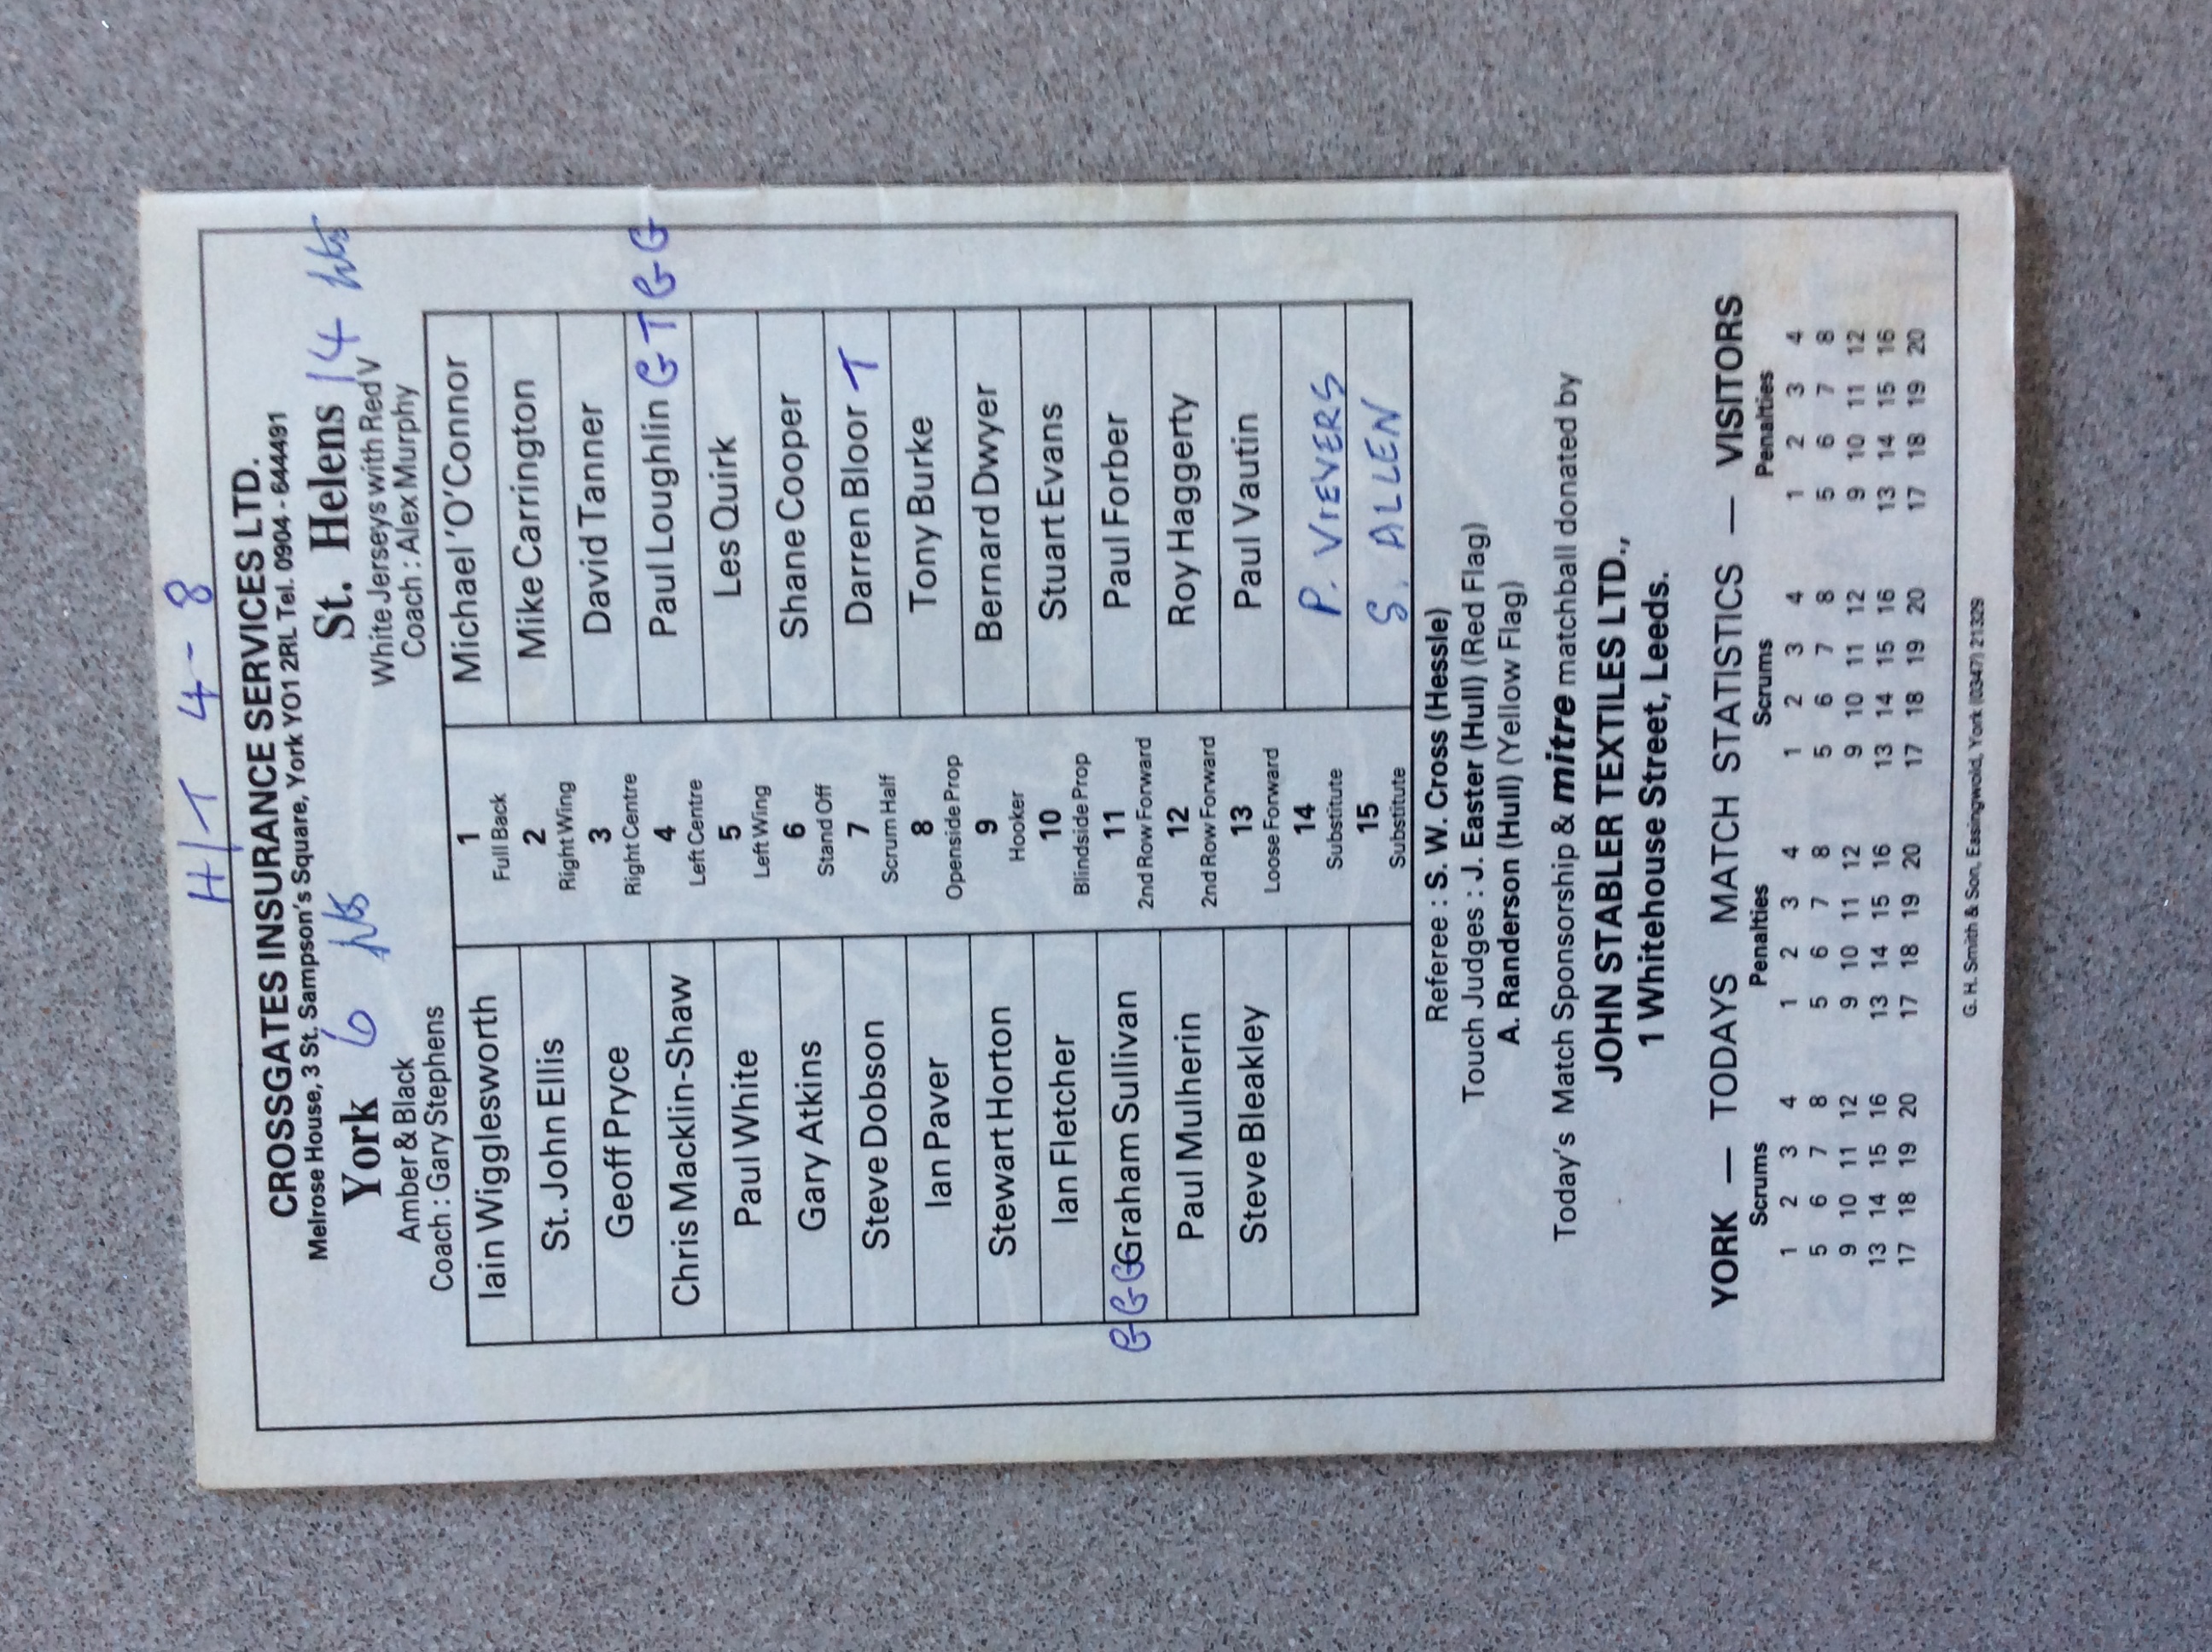 H/T 4-8
CROSSGATES INSURANCE SERVICES LTD.
Melrose House, 3 St. Sampson's Square, York YO1 2RL Tel. 0904 - 644491
York 6 pts St. Helens 14 pts
Amber & Black White Jerseys with Red V
Coach : Gary Stephens Coach : Alex Murphy
Iain Wigglesworth 1 Full Back Michael 'O'Connor
St. John Ellis 2 Right Wing Mike Carrington
Geoff Pryce 3 Right Centre David Tanner
Chris Macklin-Shaw 4 Left Centre Paul Loughlin G T G G
Paul White 5 Left Wing Les Quirk
Gary Atkins 6 Stand Off Shane Cooper
Steve Dobson 7 Scrum Half Darren Bloor T
Ian Paver 8 Openside Prop Tony Burke
Stewart Horton 9 Hooker Bernard Dwyer
Ian Fletcher 10 Blindside Prop Stuart Evans
G G G Graham Sullivan 11 2nd Row Forward Paul Forber
Paul Mulherin 12 2nd Row Forward Roy Haggerty
Steve Bleakley 13 Loose Forward Paul Vautin
14 Substitute P. VIEVERS
15 Substitute S. ALLEN
Referee : S. W. Cross (Hessle)
Touch Judges : J. Easter (Hull) (Red Flag)
A. Randerson (Hull) (Yellow Flag)
Today's Match Sponsorship & mitre matchball donated by
JOHN STABLER TEXTILES LTD.,
1 Whitehouse Street, Leeds.
YORK — TODAYS MATCH STATISTICS — VISITORS
Scrums Penalties Scrums Penalties
1 2 3 4 1 2 3 4 1 2 3 4 1 2 3 4
5 6 7 8 5 6 7 8 5 6 7 8 5 6 7 8
9 10 11 12 9 10 11 12 9 10 11 12 9 10 11 12
13 14 15 16 13 14 15 16 13 14 15 16 13 14 15 16
17 18 19 20 17 18 19 20 17 18 19 20 17 18 19 20
G. H. Smith & Son, Easingwold, York (0347) 21329